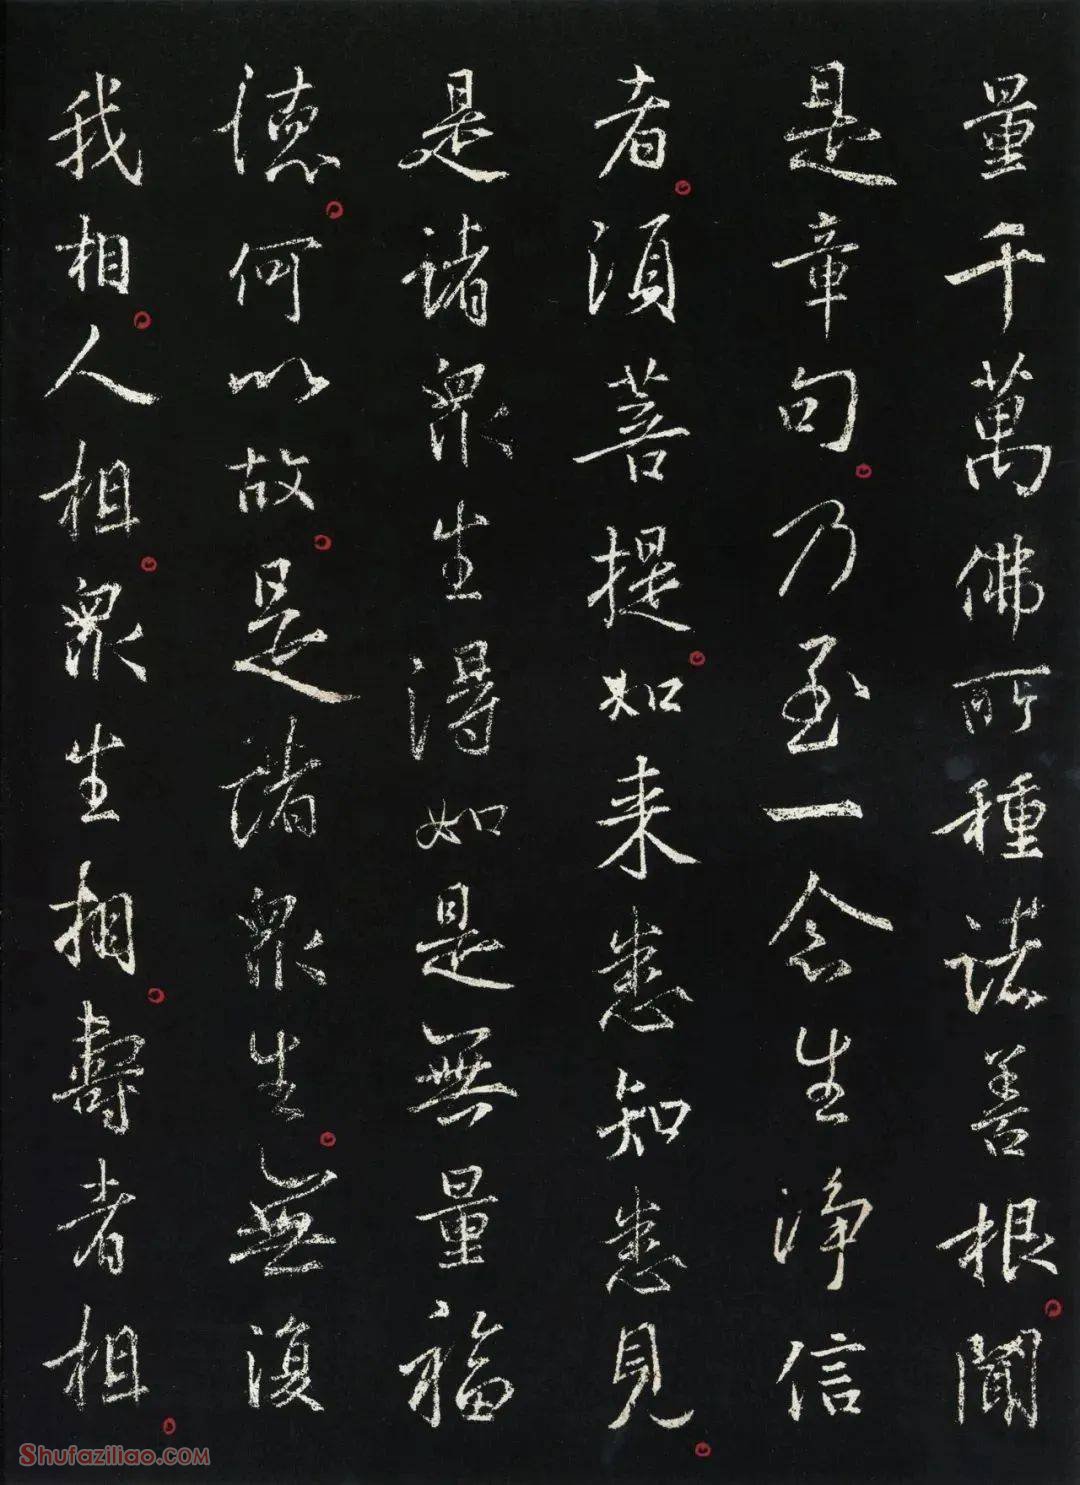 量千萬佛所種諸善根聞
是章句乃至一念生淨信
者須菩提如来悉知悉見
是諸衆生得如是無量福
德何以故是諸衆生無復
我相人相衆生相壽者相
Shufaziliao.COM